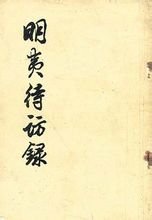 明夷待访録